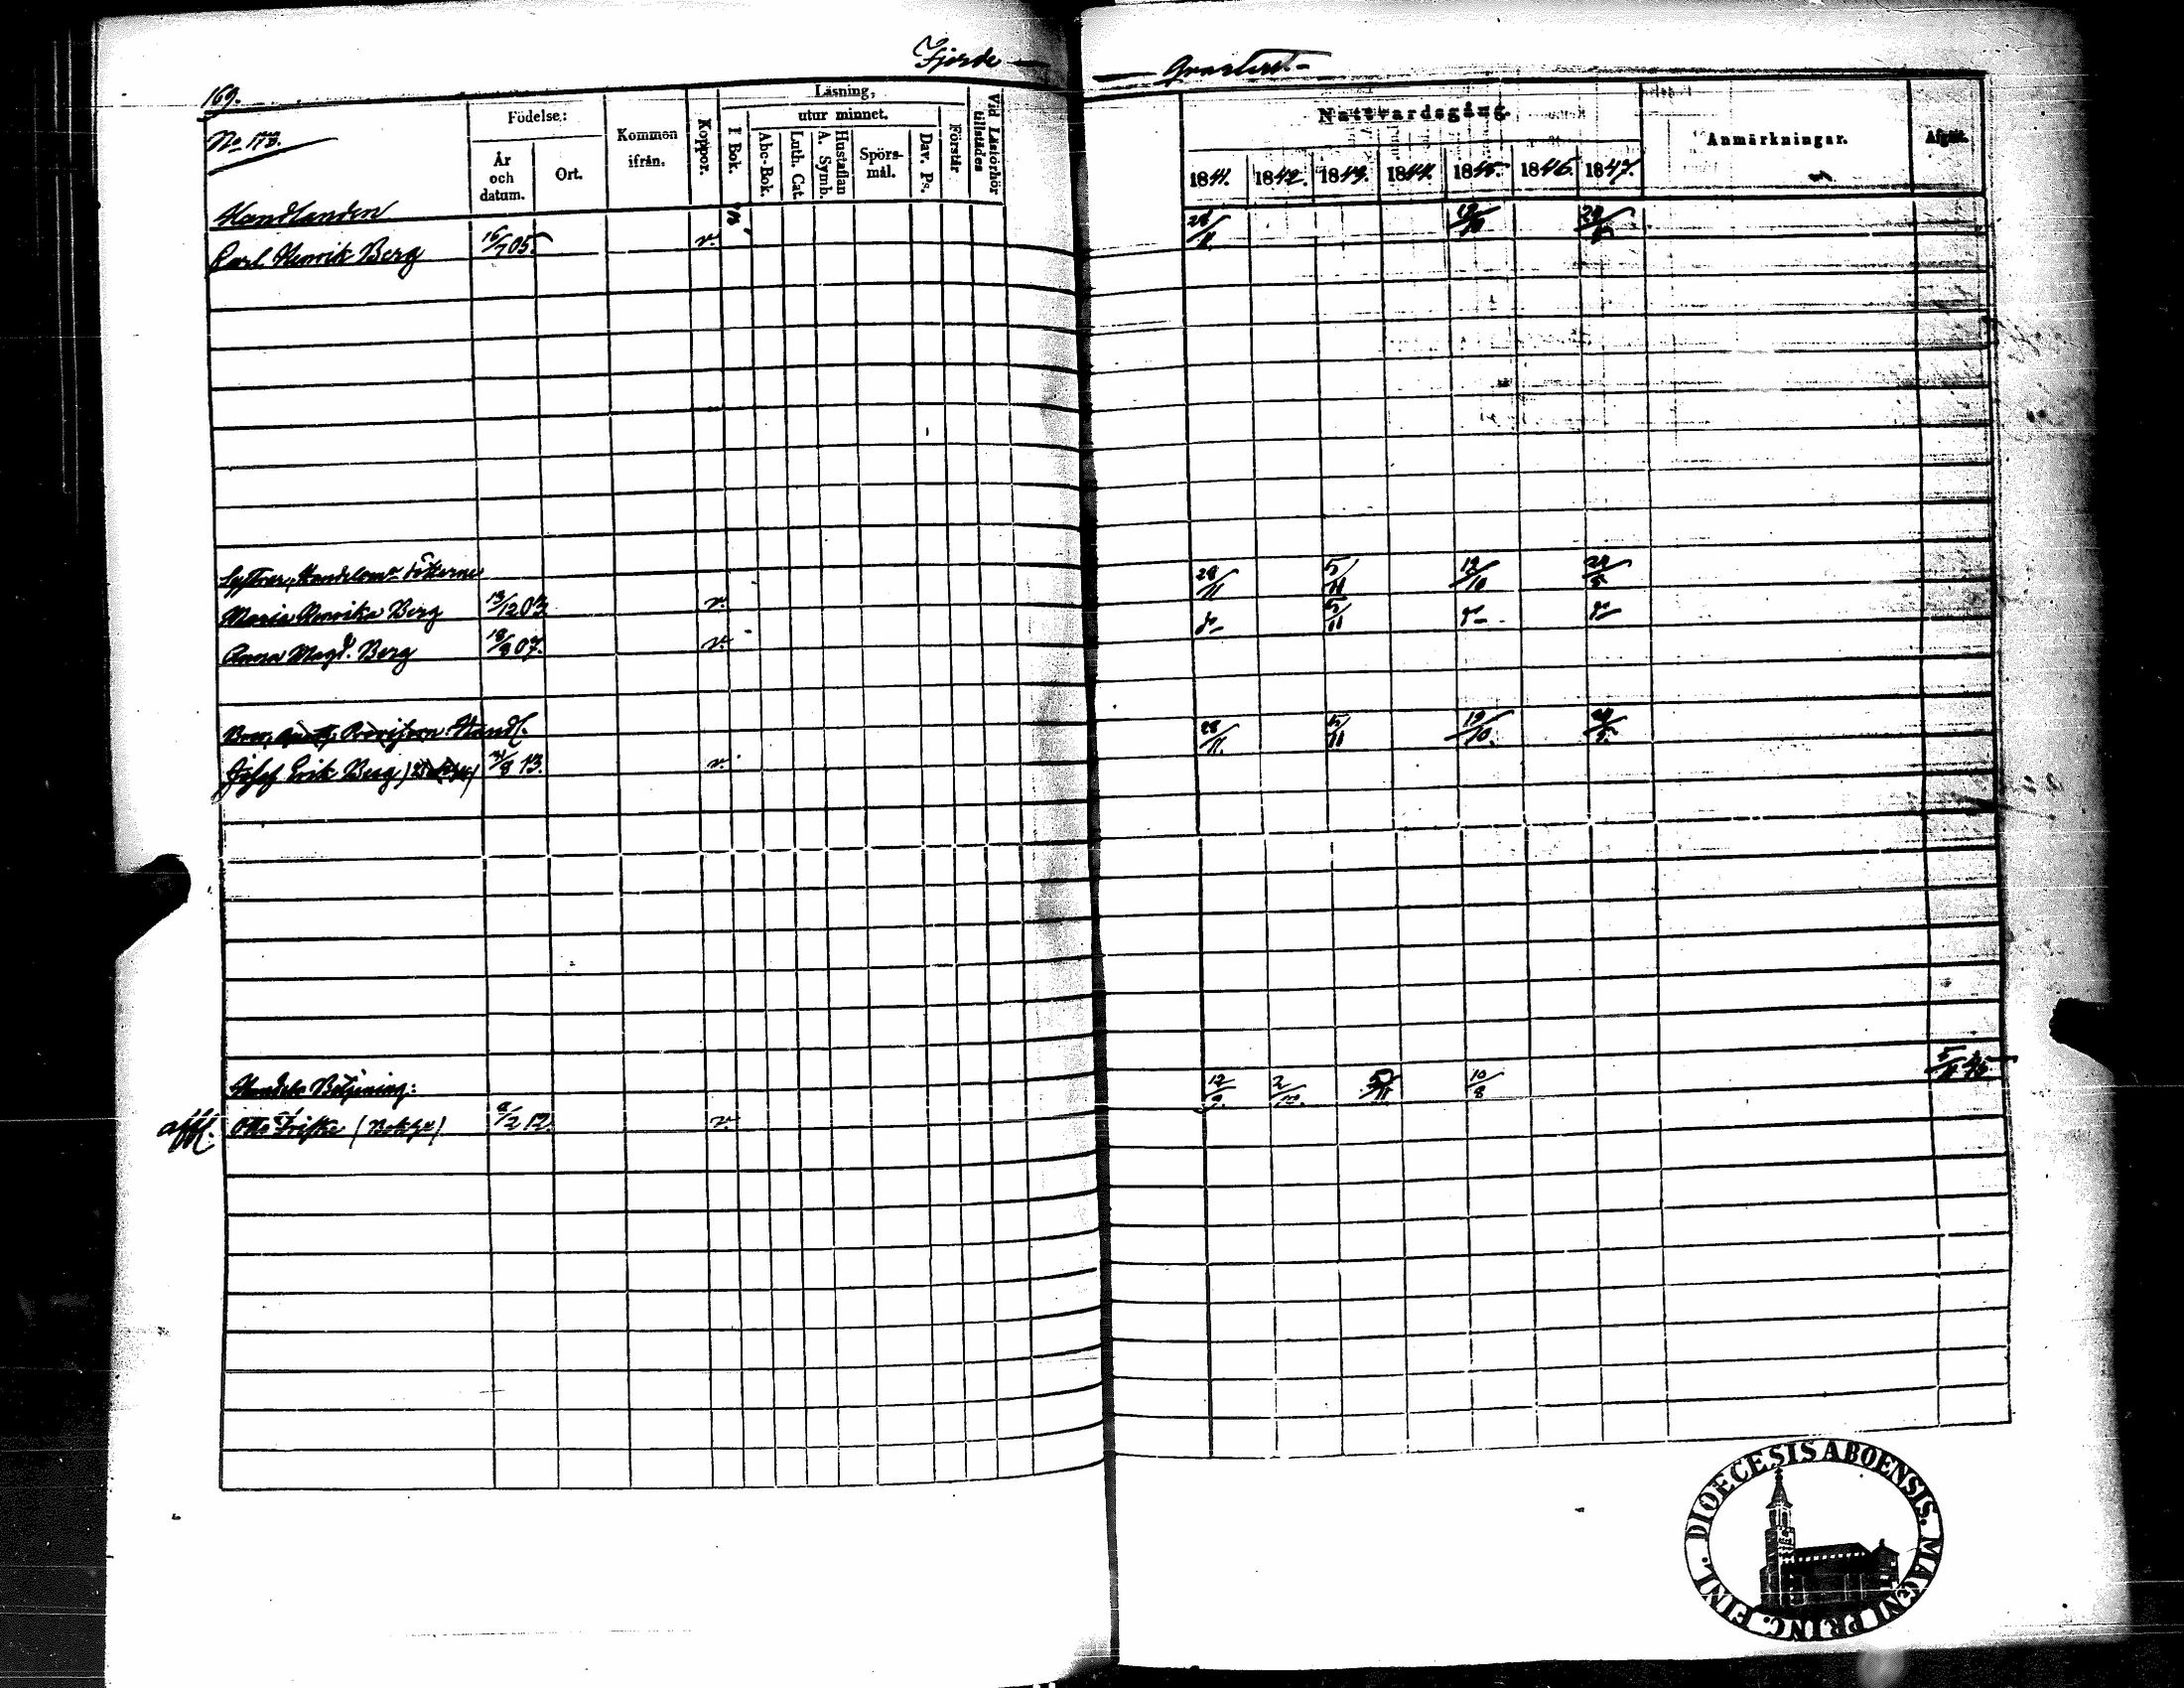 Fjerde — — Qvarteret-
169.
No 173.
Födelse:
År och datum.
Ort.
Kommen ifrån.
Koppor.
Läsning,
I Bok.
utur minnet.
Abc-Bok.
Luth. Cat.
A. Symb.
Hustaflan
Spörsmål.
Dav. Ps.
Förstår
Vid Läsförhör tillstädes
Nattvardsgång.
1841. 1842. 1843. 1844. 1845. 1846. 1847.
Anmärkningar.
Afgått.
Handlanden 28/11 12/10
Carl Henrik Berg 16/7 05. v.
Systrar, Handelsm:s döttrarne 28/11 5/11 12/10 29/5
Maria Henrika Berg 13/12 03. v. 5/11
Anna Magd. Berg 18/8 07. v.
Bror, Provisorn Handl. 28/11. 5/11 12/10.
Josef Erik Berg 21/8 13. v.
Handels Betjening: 12/9. 2/10. 5/11 10/8 5/11 45
Otto Friske (Bokh) 8/2 12. v.
DIOECESIS ABOENSIS. MAGNI PRINC. FINL.